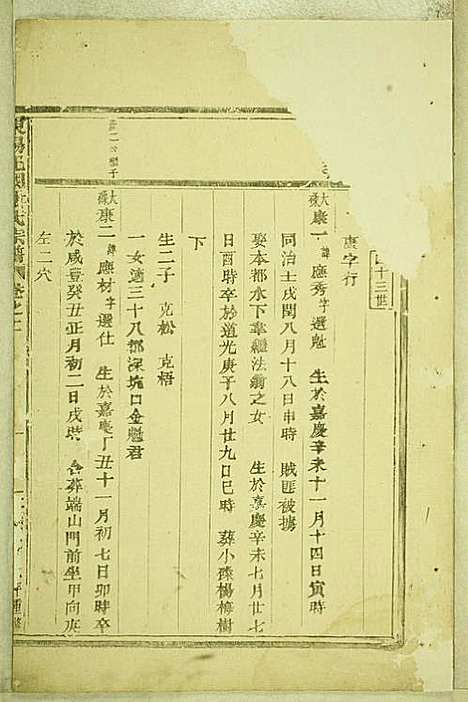 十三世
康字行
康一 諱應秀字選魁 生於嘉慶辛未十一月十四日寅時
同治壬戌閏八月十八日申時 賊匪被擄
娶本都水下韋繼法翁之女 生於嘉慶辛未七月廿七
日酉時卒於道光庚子八月廿九日巳時 葬小磜楊梅樹
下
生二子 克松 克梧
一女適三十八都深坑口金魁君
康二 諱應材字選仕 生於嘉慶丁丑十一月初七日卯時卒
於咸豊癸丑正月初二日戌時 合葬端山門前坐甲向庚
左二穴